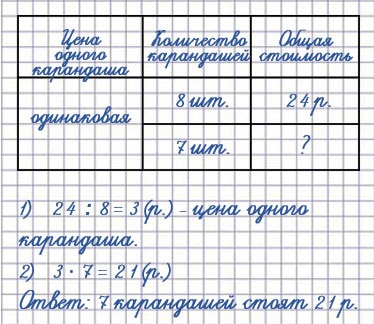 Цена
одного
карандаша
Количество
карандашей
Общая
стоимость
одинаковая
8 шт.
24 р.
7 шт.
?
1) 24 : 8 = 3 (р.) – цена одного
карандаша.
2) 3 · 7 = 21 (р.)
Ответ: 7 карандашей стоят 21 р.